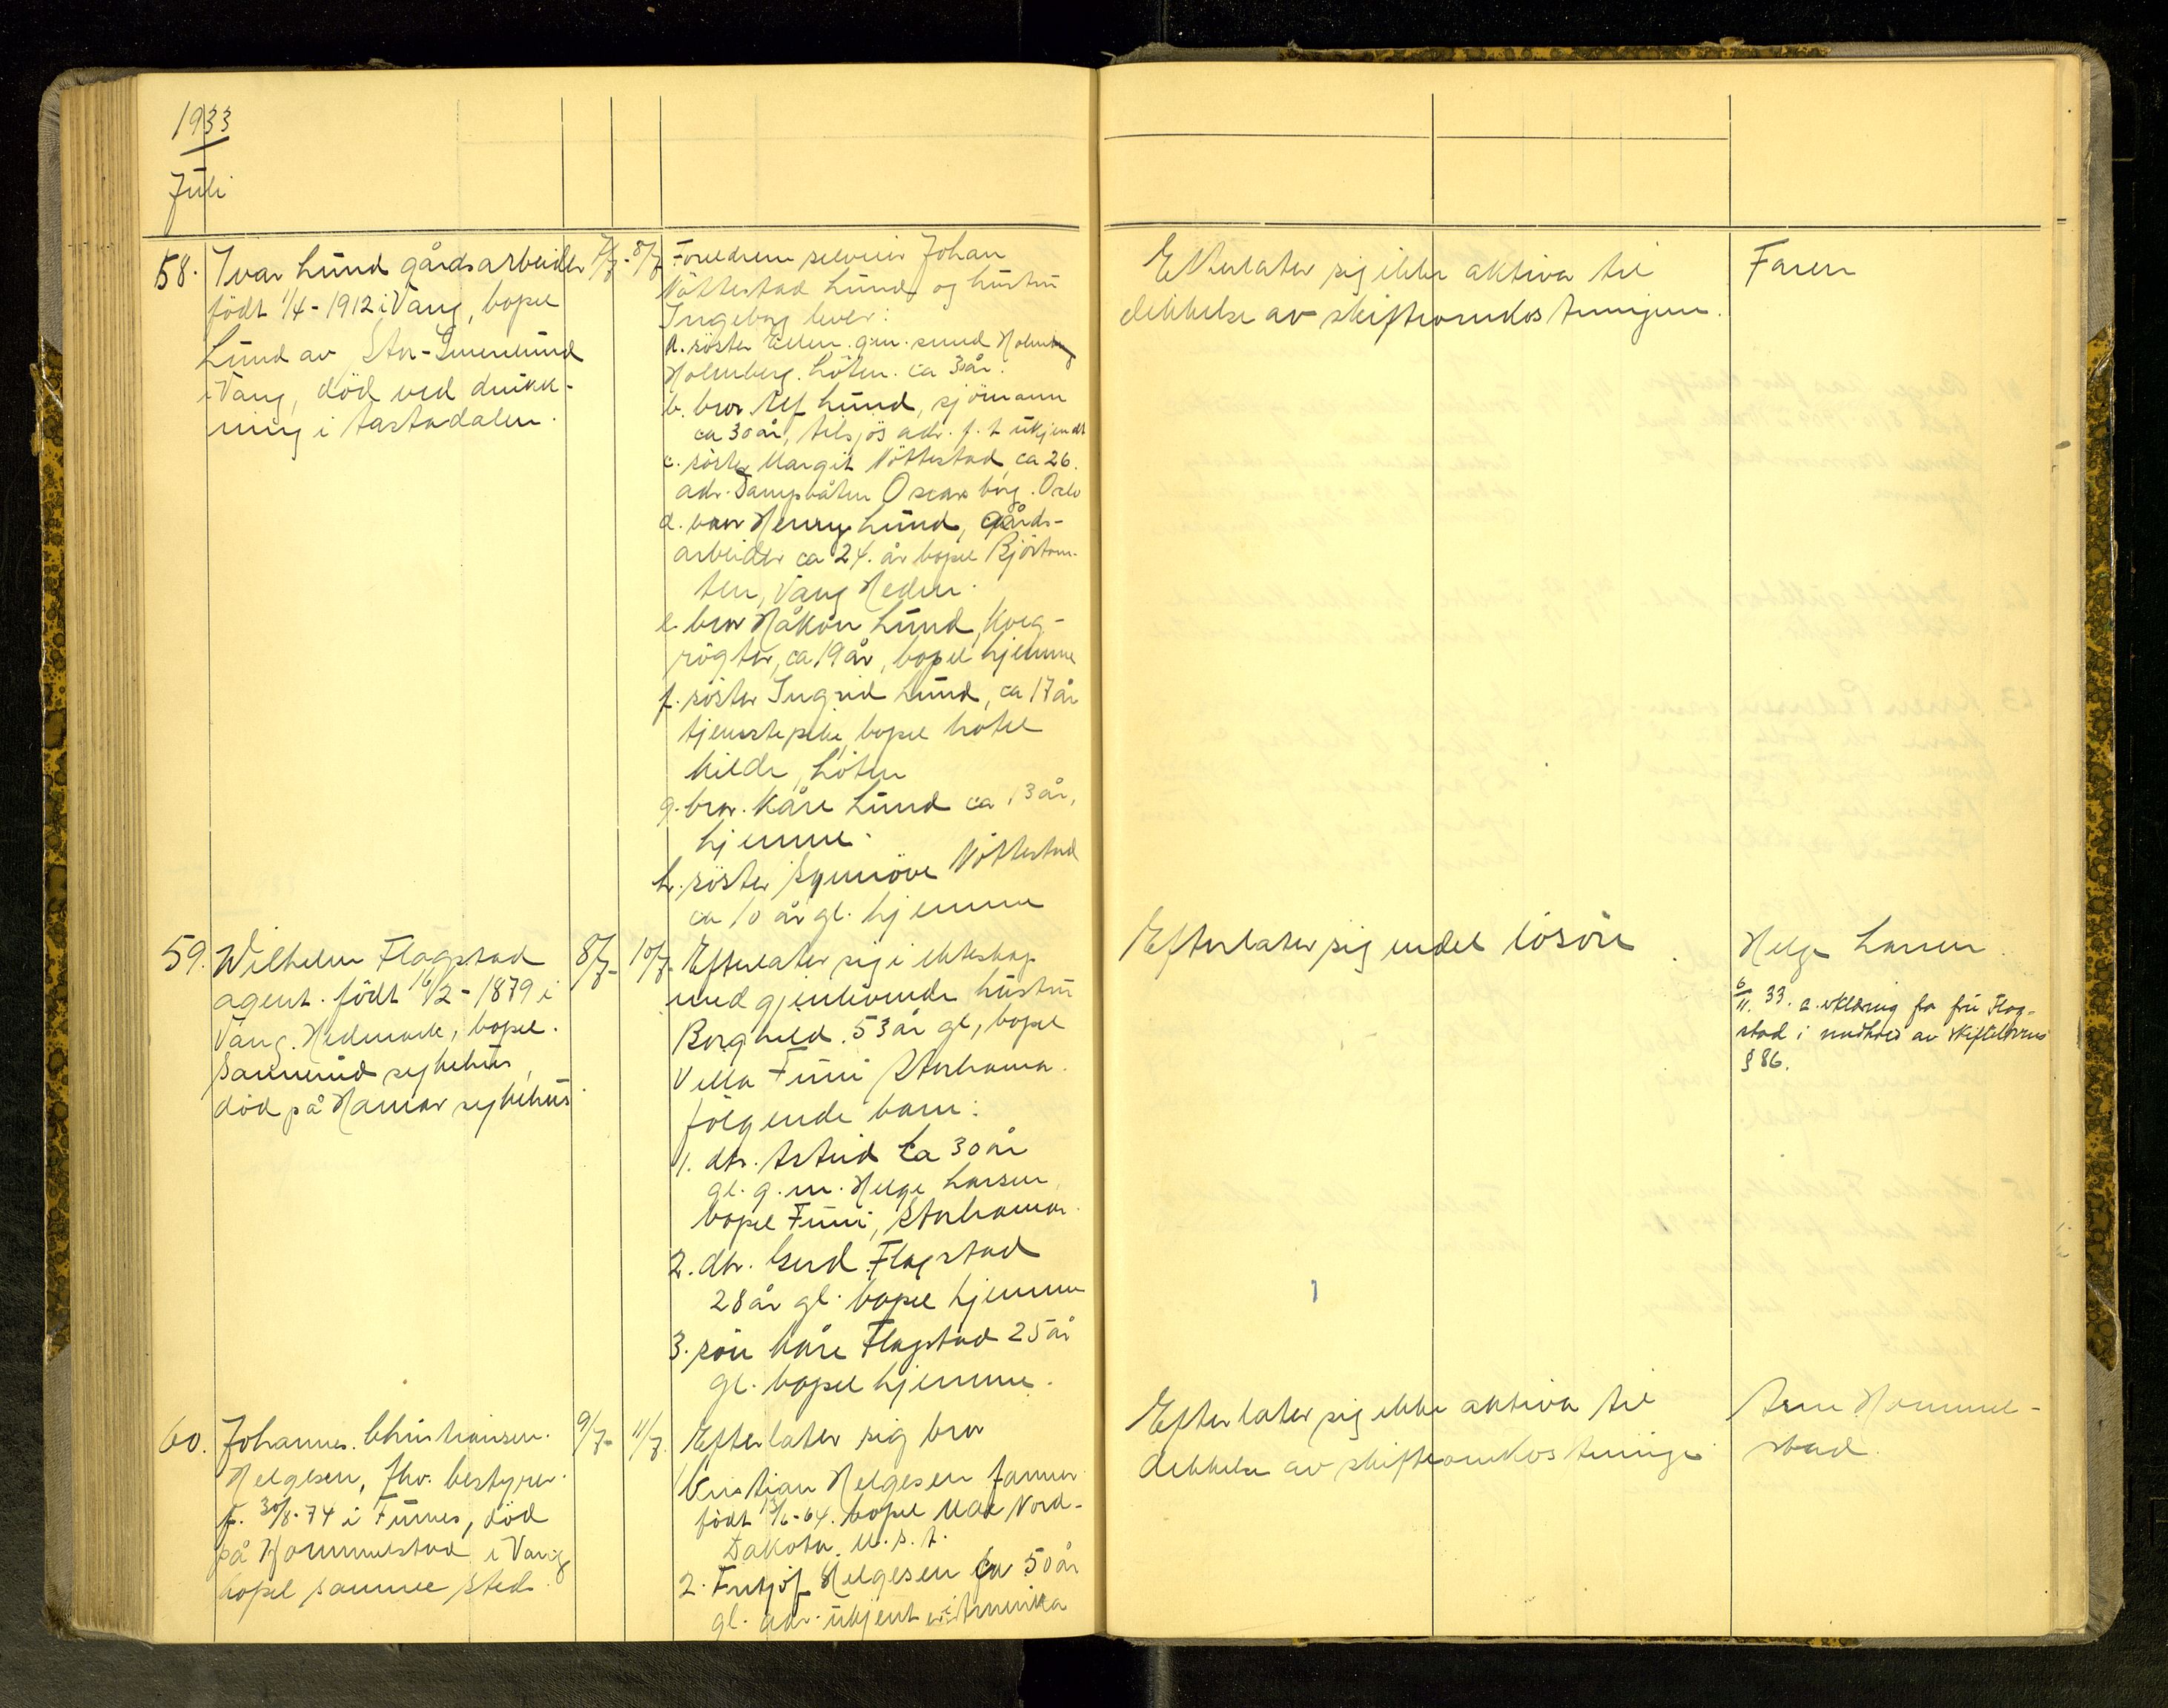 1933
Juli
58. Ivar Lund gårdsarbeider
födt 1/4-1912 i Vang, bopel
Lund av Stor-
i Vang, död ved drukk-
ning i Aastadalen.
7/7- 8/7
Foreldrene selveier Johan
Nöttestad Lund og hustru
Ingeborg lever:
a. söster Ellen g.m. smed
Holmberg. Löten. ca 30 år.
b. bror Alf Lund, sjömann
ca 30 år, tilsjös adr. f. t ukjendt
c. söster Margit Nöttestad, ca 26.
adr. Dampbåten Oscarsborg. Oslo
d. bror Henry Lund, gårds-
arbeider ca 24. år bopel
ten, Vang Hedm.
e. bror Håkon Lund, kveg-
rögter, ca 19 år, bopel hjemme
f. söster Ingrid Lund, ca 17 år
tjenestepike, bopel hotel
Kilde, Löten
g. bror. Kåre Lund ca 13 år,
hjemme.
h. söster Synnöve Nöttestad
ca 10 år gl. hjemme
Efterlater sig ikke aktiva til
dekkelse av skifteomkostningene.
Faren
59. Wilhelm Flagstad
agent. födt 16/2-1879 i
Vang. Hedmark, bopel.
Sanerud sykehus,
död på Hamar sykehus
8/7- 10/7-
Efterlater sig i ekteskap
med gjenlevende hustru
Borghild. 53 år gl, bopel
Villa Furu Storhamar.
fölgende barn:
1. dtr. Astrid ca 30 år
gl. g. m. Helge Larsen,
bopel Furu, Storhamar.
2. dtr. Gerd Flagstad
28 år gl. bopel hjemme
3. sön Kåre Flagstad 25 år
gl. bopel hjemme.
Efterlater sig endel lösöre.
Helge Larsen.
6/11. 33. a. erklæring fra fru Flag-
stad i medhold av skiftelovens
§ 86.
60. Johannes. Christiansen.
Helgesen, fhv. bestyrer.
f. 30/8-74 i Furnes, död
på Hommelstad i Vang
bopel samme sted.
9/7- 11/7.
Efterlater sig bror
1. Kristian Helgesen farmer
födt 13/6-64. bopel Nord-
Dakota. U.S.A.
2. Frithjof Helgesen ca 50 år
gl. adr. ukjent i Amerika
Efterlater sig ikke aktiva til
dekkelse av skifteomkostninge
Arne Hommel-
stad.